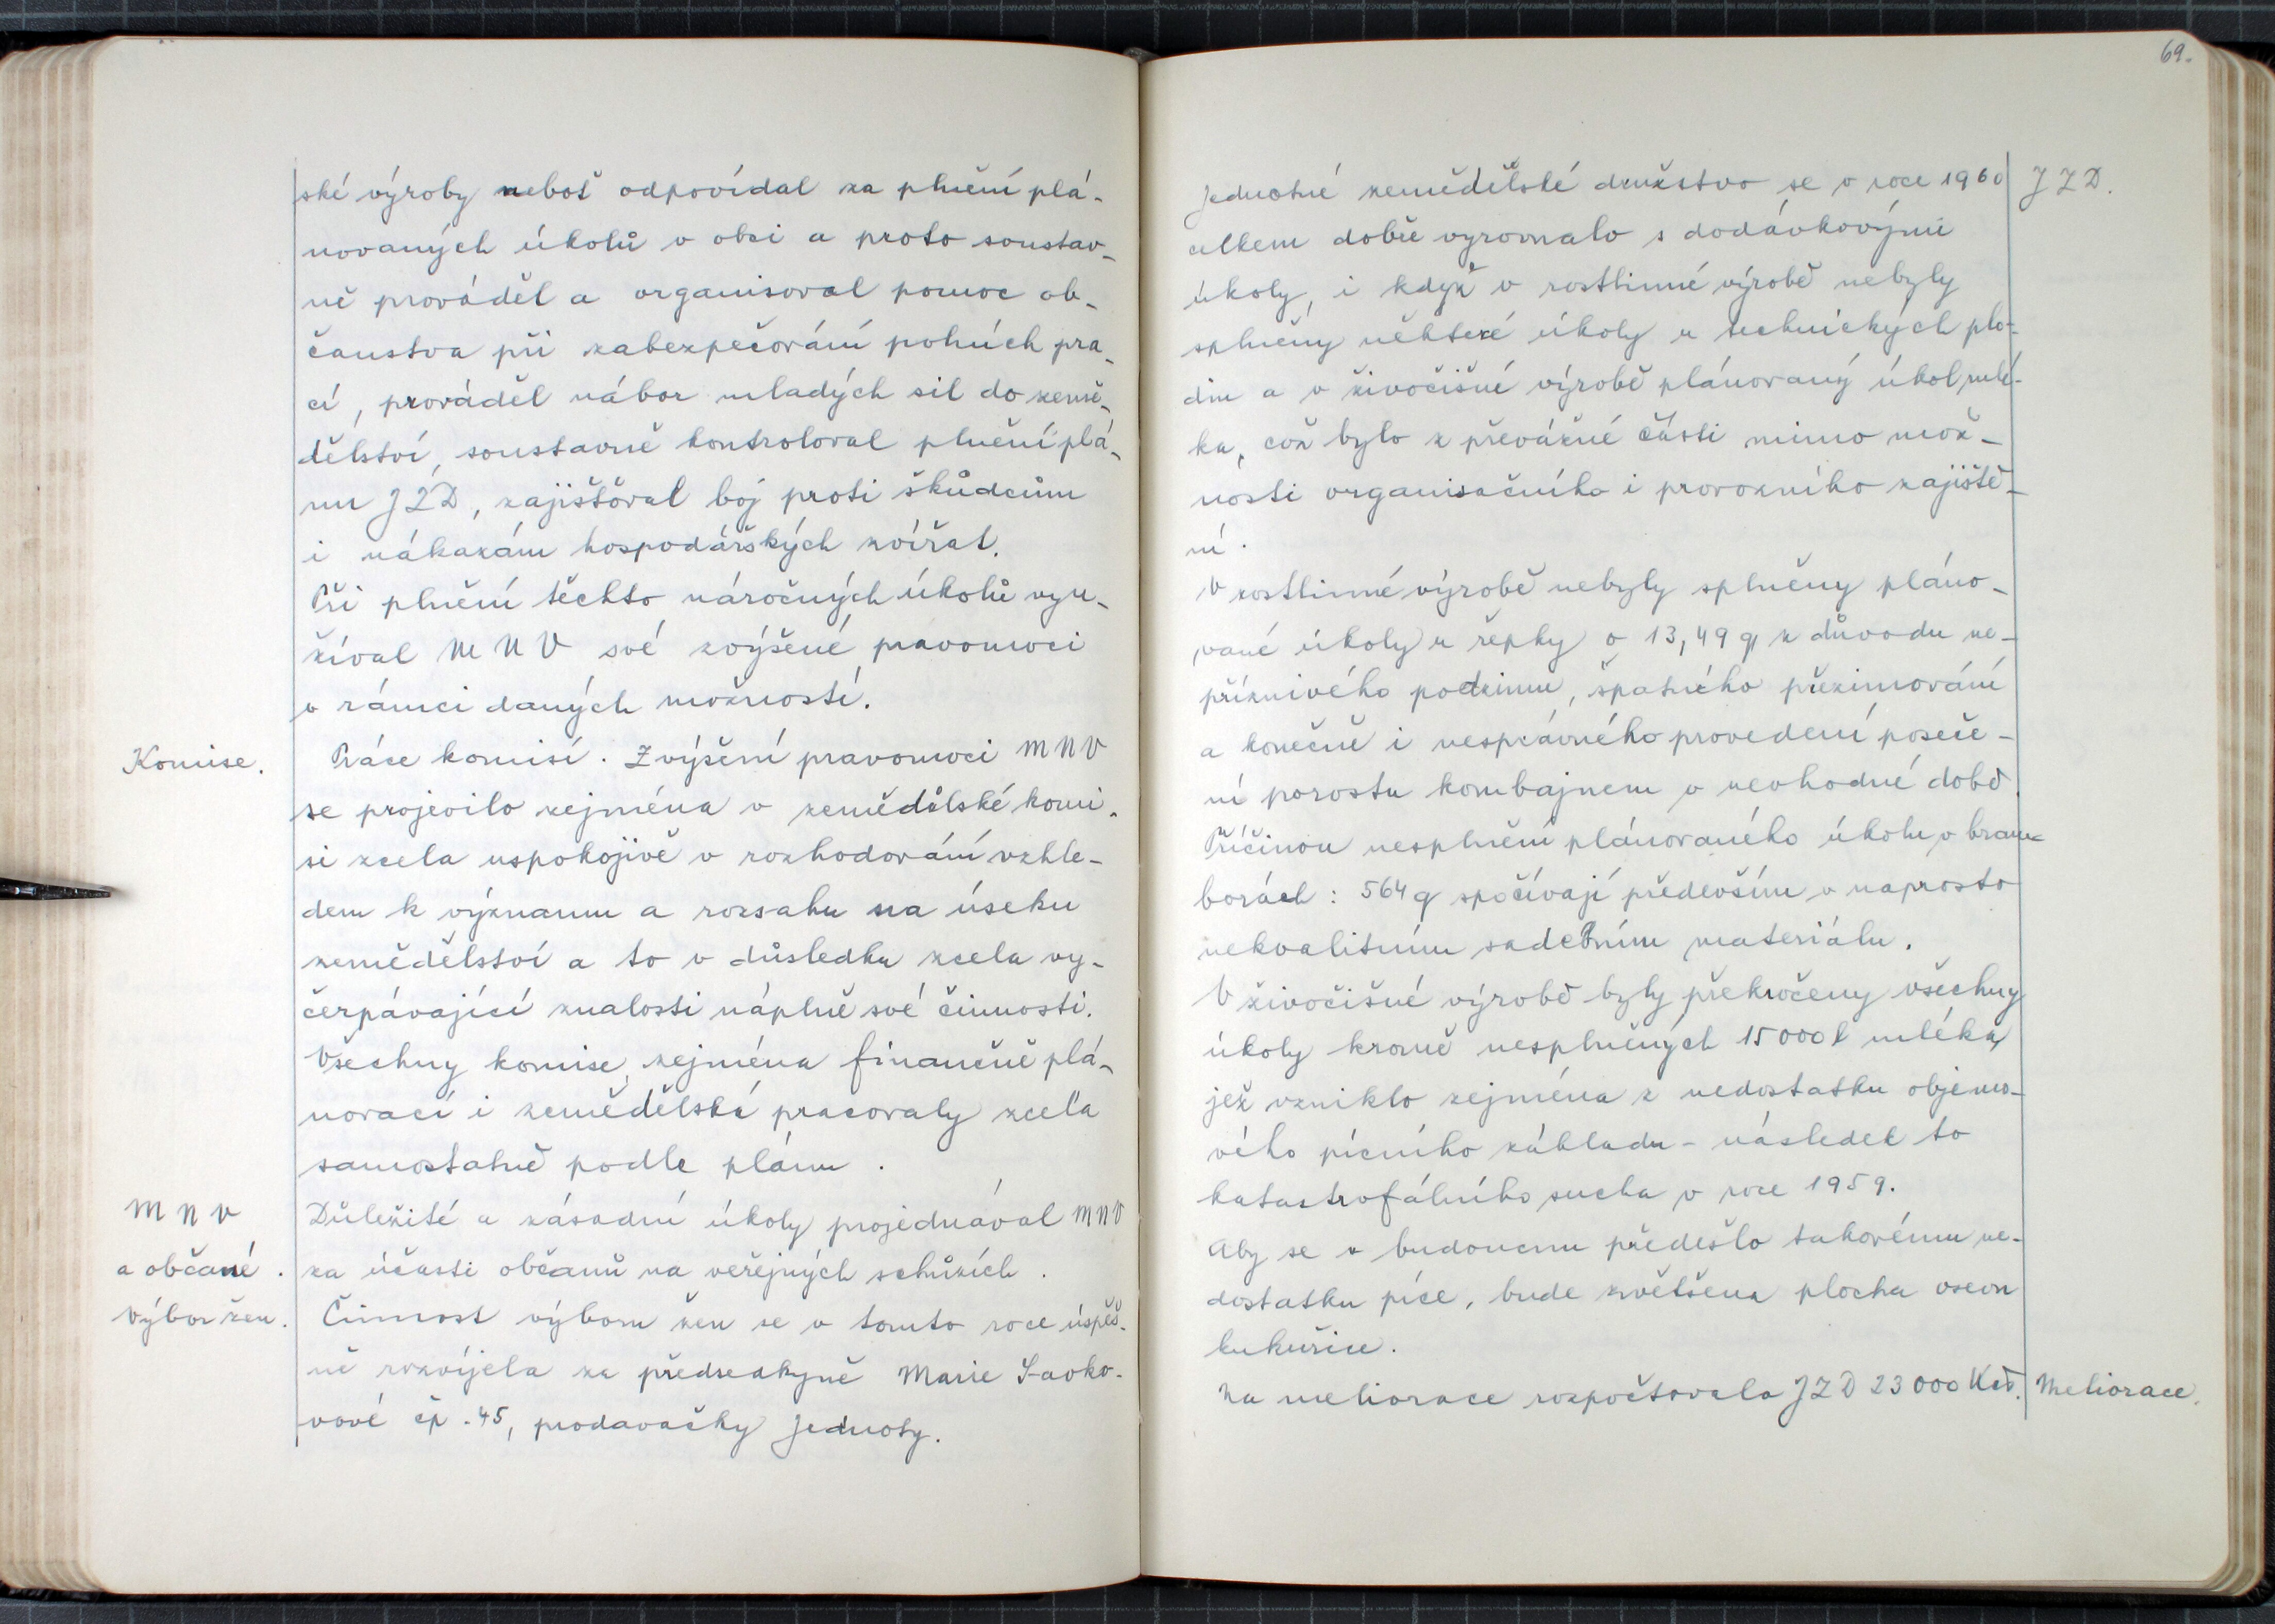 ské výroby neboť odpovídal za plnění plá-
novaných úkolů v obci a proto soustav-
ně prováděl a organisoval pomoc ob-
čanstva při zabezpečování polních pra-
cí, prováděl nábor mladých sil do země-
dělství, soustavně kontroloval plnění plá-
nu JZD, zajišťoval boj proti škůdcům
i nákazám hospodářských zvířat.
Při plnění těchto náročných úkolů vyu-
žíval MNV své zvýšené pravomoci
v rámci daných možností.
Komise.
Práce komisí. Zvýšení pravomoci MNV
se projevilo zejména v zemědělské komi-
si zcela uspokojivě v rozhodování vzhle-
dem k významu a rozsahu na úseku
zemědělství a to v důsledku zcela vy-
čerpávající znalosti náplně své činnosti.
Všechny komise, zejména finančně plá-
novací i zemědělská pracovaly zcela
samostatně podle plánu.
MNV
a občané.
Důležité a zásadní úkoly projednával MNV
za účasti občanů na veřejných schůzích.
Výbor žen.
Činnost výboru žen se v tomto roce úspěš-
ně rozvíjela za předsedkyně Marie Savko-
vové čp. 45, prodavačky Jednoty.
69.
JZD.
Jednotné zemědělské družstvo se v roce 1960
celkem dobře vyrovnalo s dodávkovými
úkoly, i když v rostlinné výrobě nebyly
splněny některé úkoly u technických plo-
din a v živočišné výrobě plánovaný úkol mlé-
ka, což bylo z převážné části mimo mož-
nosti organisačního i provozního zajiště-
ní.
V rostlinné výrobě nebyly splněny pláno-
vané úkoly u řepky o 13,49 q z důvodu ne-
příznivého podzimu, špatného přezimování
a konečně i nesprávného provedení poseče-
ní porostu kombajnem v nevhodné době.
Příčinou nesplnění plánovaného úkolu v bram-
borách: 564 q spočívají především v naprosto
nekvalitním sadebním materiálu.
V živočišné výrobě byly překročeny všechny
úkoly kromě nesplněných 15000 l mléka,
jež vzniklo zejména z nedostatku objemo-
vého pícního základu - následek to
katastrofálního sucha v roce 1959.
Aby se v budoucnu předešlo takovému ne-
dostatku píce, bude zvětšena plocha osevu
kukuřice.
Na meliorace rozpočtovalo JZD 23000 Kčs.
Meliorace.